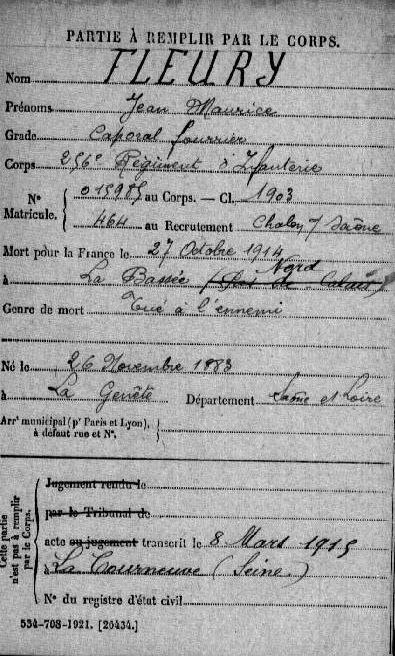 PARTIE À REMPLIR PAR LE CORPS.
Nom FLEURY
Prénoms Jean Maurice
Grade Caporal fourrier
Corps 256e Régiment d'Infanterie
N° Matricule. { 015985 au Corps. — Cl. 1903
464 au Recrutement Chalon s/ Saône
Mort pour la France le 27 Octobre 1914
à La Bassée (Pas de Calais) Nord
Genre de mort Tué à l'ennemi
Né le 26 Novembre 1883
à La Genête Département Saône et Loire
Arrt municipal (pr Paris et Lyon), à défaut rue et N°.
Cette partie n'est pas à remplir par le Corps.
Jugement rendu le
par le Tribunal de
acte ou jugement transcrit le 8 Mars 1915
à La Courneuve (Seine)
N° du registre d'état civil
534-708-1921. [26434.]